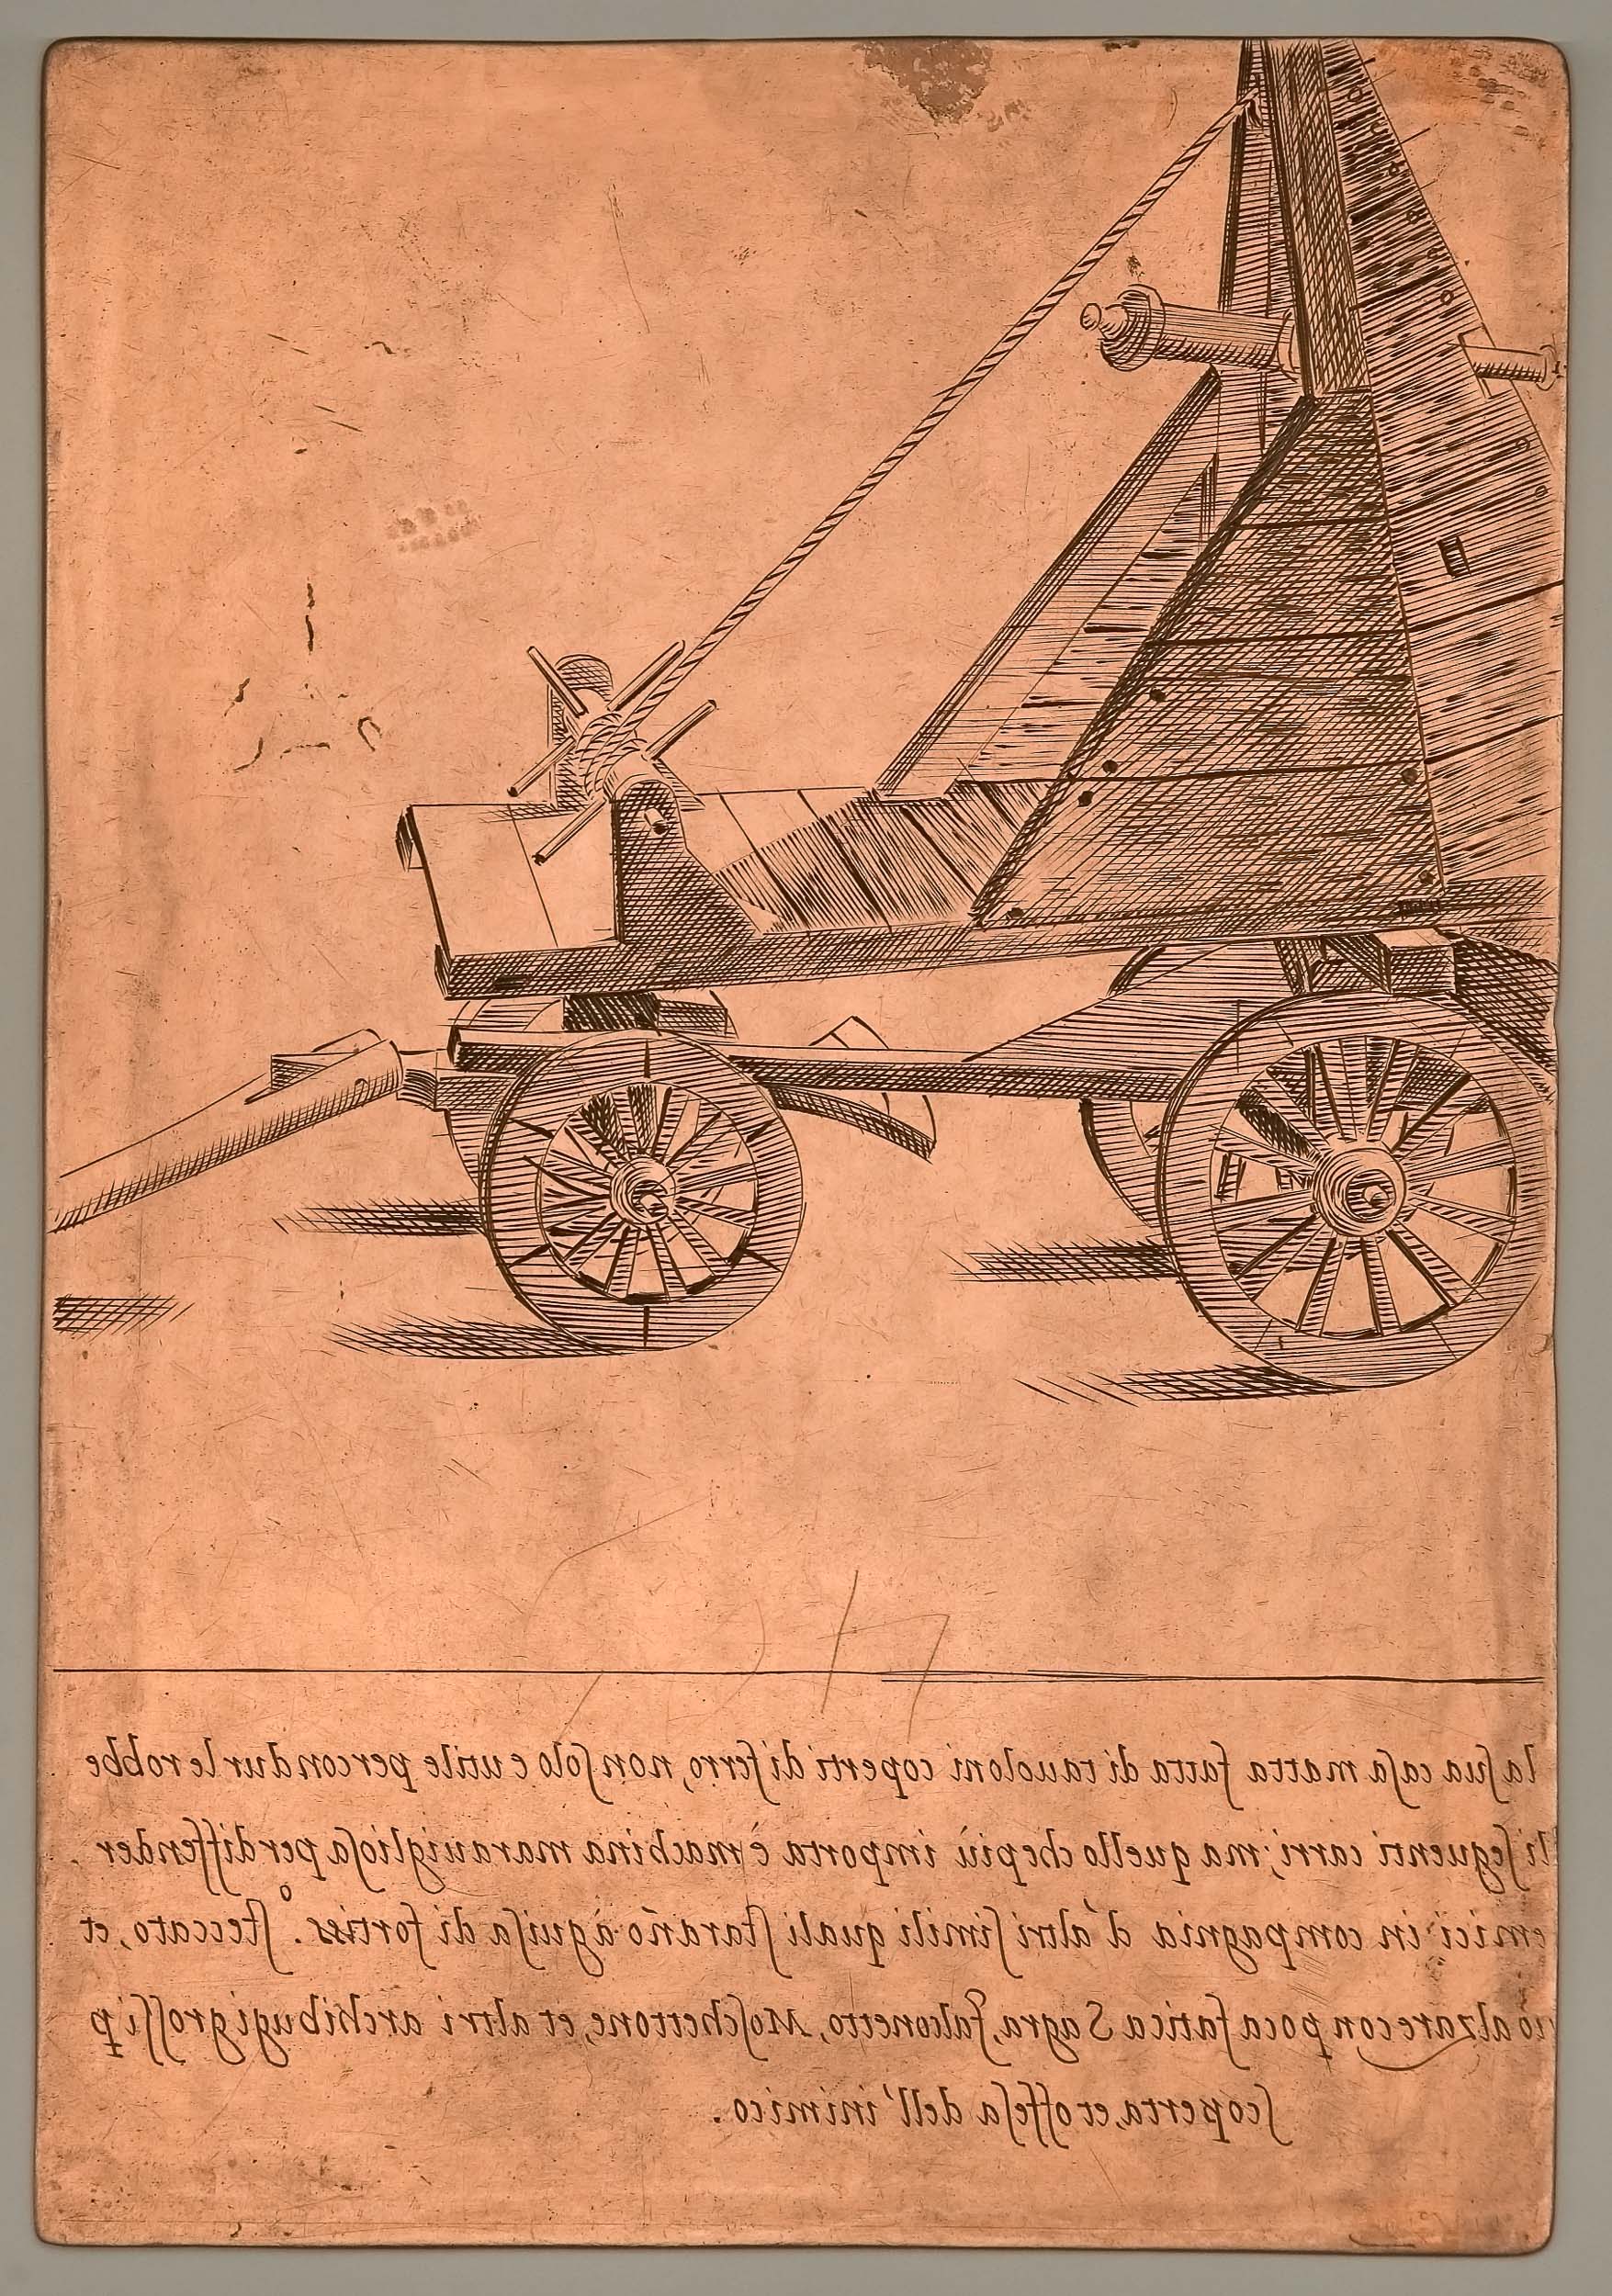 la ſua caſa matta fatta di tauoloni coperti di ferro, non ſolo e utile per condur le robbe
li ſeguenti carri; ma quello che più importa è machina marauiglioſa per diffender
emici in compagnia d'altri ſimili quali ſtarãno à guiſa di fortiss.º ſteccato, et
alzare con poca fatica Sagra, falconetto, Moſchettone, et altri archibugi groſſi p
ſcoperta, et offeſa dell'inimico.